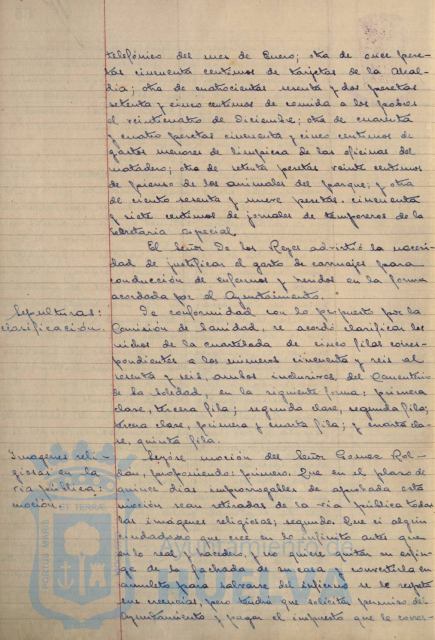 telefónico del mes de Enero; otra de once pese-
tas cincuenta centimos de tarjetas de la Alcal-
dia; otra de cuatrocientas sesenta y dos pesetas
setenta y cinco centimos de comida a los pobres
el veinticuatro de Diciembre; otra de cuarenta
y cuatro pesetas cincuenta y cinco centimos de
gastos menores de limpieza de las oficinas del
matadero; otra de setenta pesetas veinte centimos
de pienso de los animales del parque; y otra
de ciento sesenta y nueve pesetas cincuenta
y siete centimos de jornales de temporeros de la
Secretaria especial.
El Señor De los Reyes advirtió la necesi-
dad de justificar el gasto de carruajes para
conducción de enfermos y heridos en la forma
acordada por el Ayuntamiento.
Sepulturas:
clasificación.
De conformidad con lo propuesto por la
Comisión de Sanidad, se acordó clasificar los
nichos de la cuartelada de cinco filas corres-
pondientes a los números cincuenta y seis al
sesenta y seis, ambos inclusives, del Cementerio
de la Soledad, en la siguiente forma: primera
clase, tercera fila; segunda clase, segunda fila;
tercera clase, primera y cuarta fila; y cuarta cla-
se, quinta fila.
Imagenes reli-
giosas en la
via pública:
moción.
Leyóse moción del Señor Gomez Rol-
dán, proponiendo: primero. Que en el plazo de
quince dias improrrogables de aprobada esta
moción sean retiradas de la via pública todas
las imágenes religiosas; segundo. Que si algun
ciudadano que cree en lo infinito antes que
en lo real y hacedero, no quiere quitar su esfin-
ge de la fachada de su casa y convertirla en
amuleto para salvarse del infierno se le respete
ese esencial, pero tendrá que solicitar permiso del
Ayuntamiento y pagar el impuesto que le corres-
PORTUS MARIS
ET TERRAE
HUELVA